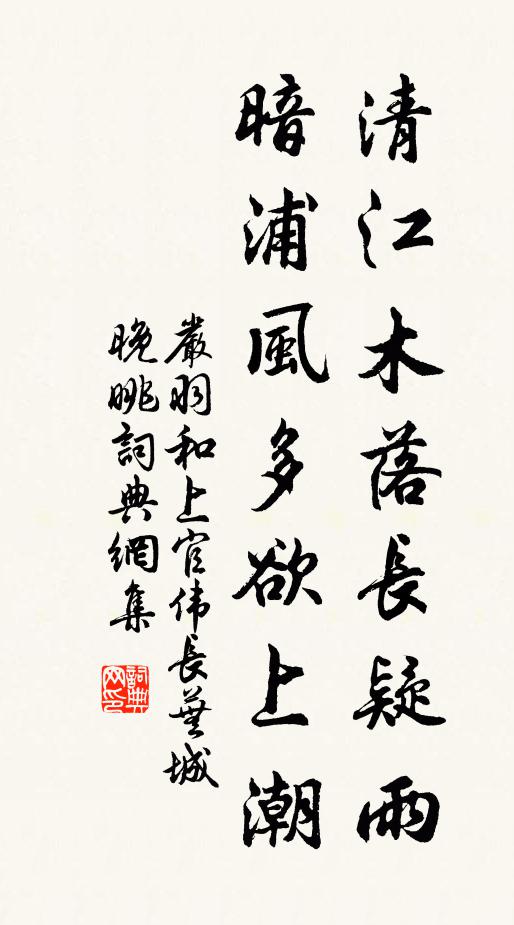 清江木落長疑雨
暗浦風多欲上潮
嚴羽和上官伟長蕪城
晚眺詞典網集
詞典网印